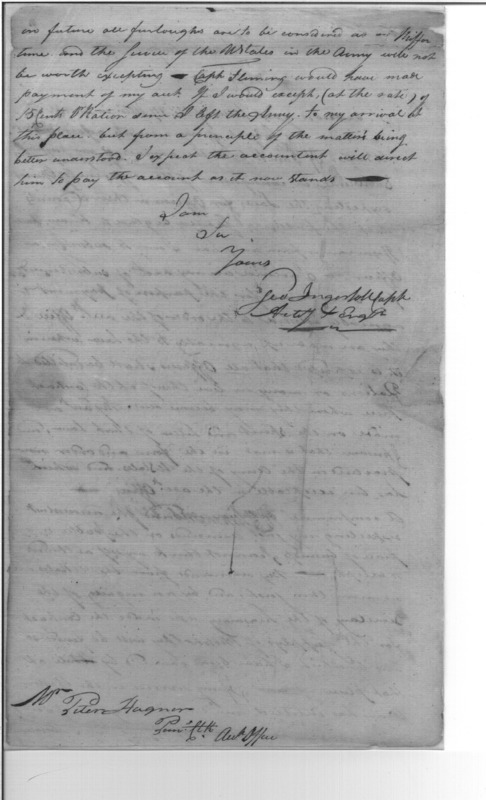 in future all furloughs are to be considered as
time and the Service of the U States in the Army will not
be worth excepting — Capt Fleming would have made
payment of my acct if I would except, (at the rate) of
Cents Ration since I left the Army, to my arrival at
this place but from a principle of the matter's being
better understood I expect the accountant will direct
him to pay the account as it now stands —
I am
Sir
Yours
Geo Ingersoll Capt
Arty & Engrs
Mr
Peter Hagner
Prin Clk Acct Office